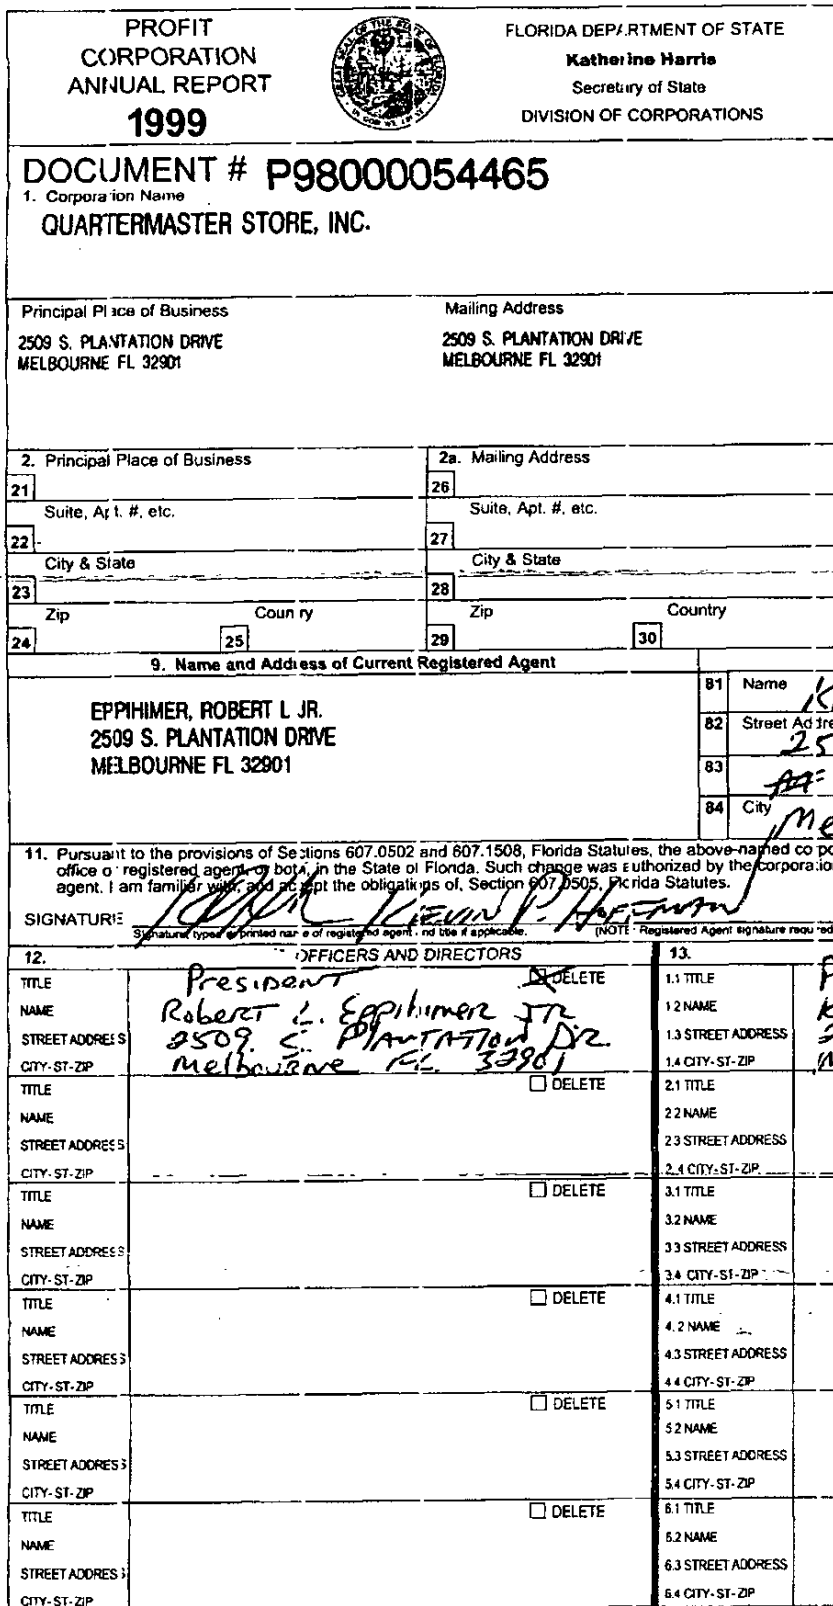 PROFIT
CORPORATION
ANNUAL REPORT
1999
FLORIDA DEPARTMENT OF STATE
Katherine Harris
Secretary of State
DIVISION OF CORPORATIONS
DOCUMENT # P98000054465
1. Corporation Name
QUARTERMASTER STORE, INC.
Principal Place of Business
Mailing Address
2509 S. PLANTATION DRIVE
MELBOURNE FL 32901
2509 S. PLANTATION DRIVE
MELBOURNE FL 32901
2. Principal Place of Business
2a. Mailing Address
21
26
Suite, Apt. #, etc.
Suite, Apt. #, etc.
22
27
City & State
City & State
23
28
Zip
Country
Zip
Country
24
25
29
30
9. Name and Address of Current Registered Agent
EPPIHIMER, ROBERT L JR.
2509 S. PLANTATION DRIVE
MELBOURNE FL 32901
81 Name
82 Street Addre
25
83
84 City
Me
11. Pursuant to the provisions of Sections 607.0502 and 607.1508, Florida Statutes, the above-named corpo
office or registered agent, or both, in the State of Florida. Such change was authorized by the corporatio
agent. I am familiar with, and accept the obligations of, Section 607.0505, Florida Statutes.
SIGNATURE KEVIN P. HOFFMAN
Signature, typed or printed name of registered agent and title if applicable. (NOTE: Registered Agent signature required
12. OFFICERS AND DIRECTORS
13.
TITLE President DELETE
NAME Robert L. Eppihimer JR
STREET ADDRESS 2509 S. PLANTATION DR.
CITY-ST-ZIP Melbourne FL 32901
1.1 TITLE
1.2 NAME
1.3 STREET ADDRESS
1.4 CITY-ST-ZIP
TITLE DELETE
NAME
STREET ADDRESS
CITY-ST-ZIP
2.1 TITLE
2.2 NAME
2.3 STREET ADDRESS
2.4 CITY-ST-ZIP
TITLE DELETE
NAME
STREET ADDRESS
CITY-ST-ZIP
3.1 TITLE
3.2 NAME
3.3 STREET ADDRESS
3.4 CITY-ST-ZIP
TITLE DELETE
NAME
STREET ADDRESS
CITY-ST-ZIP
4.1 TITLE
4.2 NAME
4.3 STREET ADDRESS
4.4 CITY-ST-ZIP
TITLE DELETE
NAME
STREET ADDRESS
CITY-ST-ZIP
5.1 TITLE
5.2 NAME
5.3 STREET ADDRESS
5.4 CITY-ST-ZIP
TITLE DELETE
NAME
STREET ADDRESS
CITY-ST-ZIP
6.1 TITLE
6.2 NAME
6.3 STREET ADDRESS
6.4 CITY-ST-ZIP